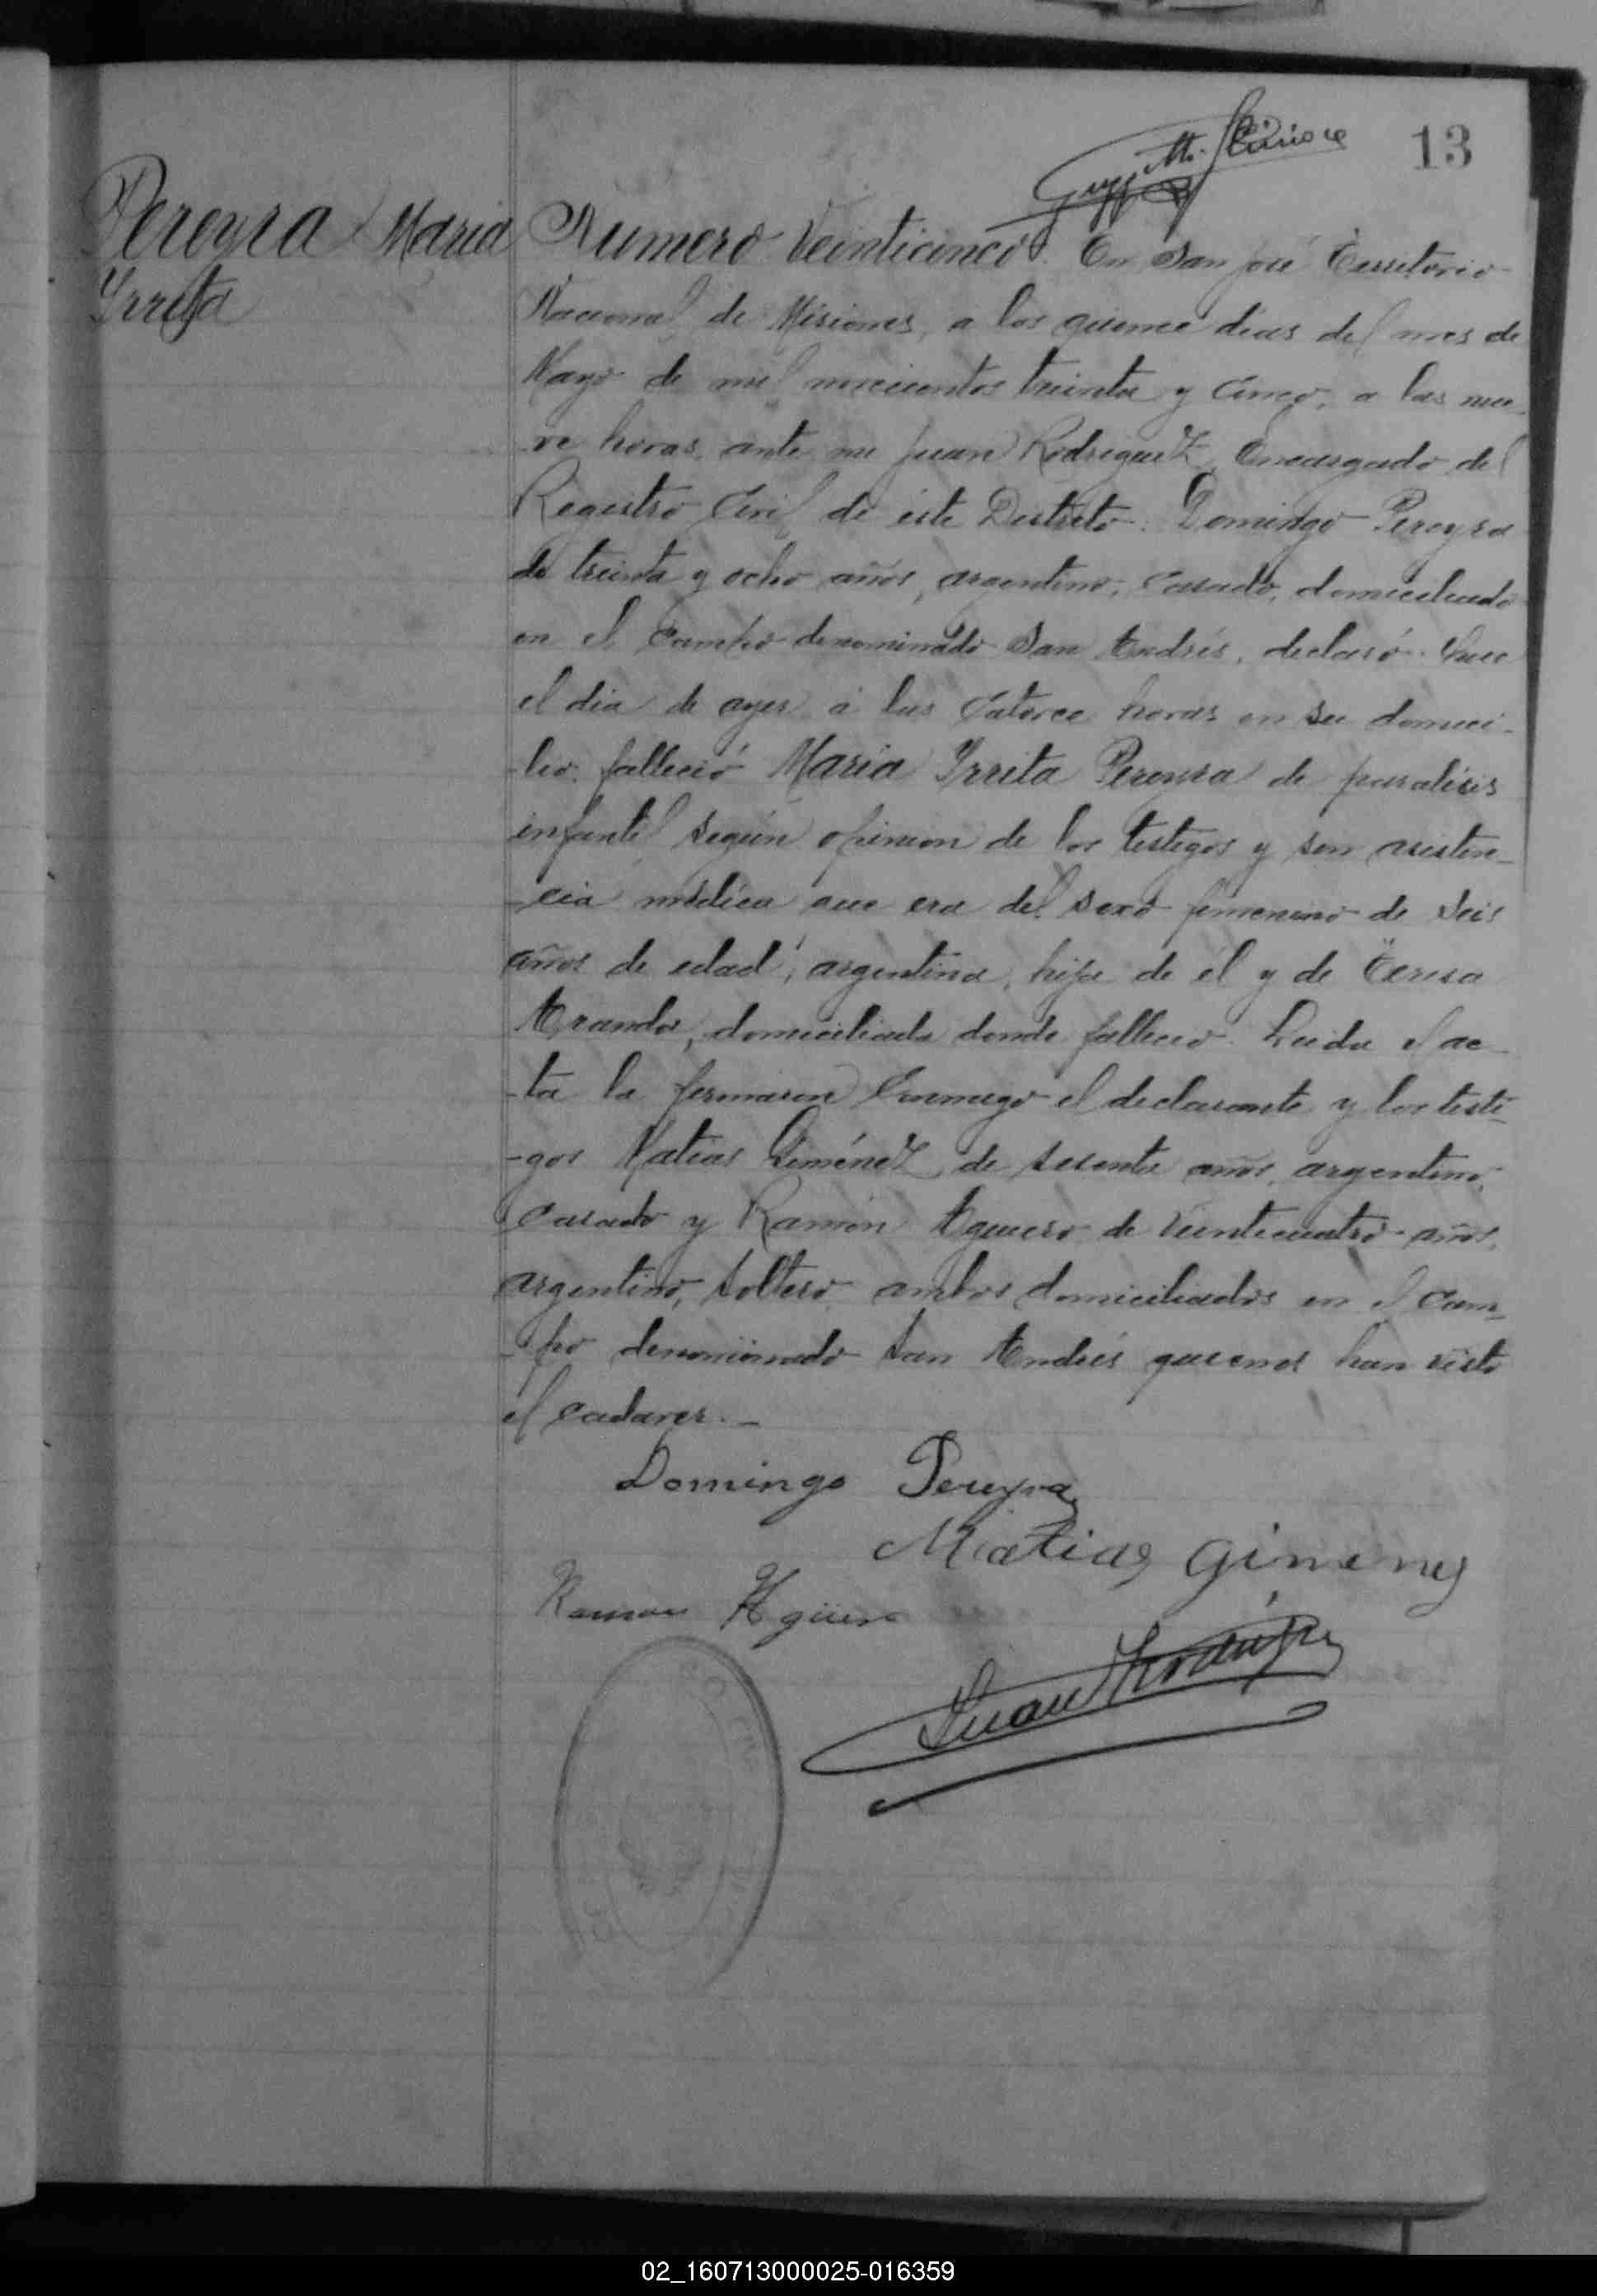 13
Pereyra Maria
Yrrita
Numero Veinticinco. En San José Territorio
Nacional de Misiones, a los quince dias del mes de
Mayo de mil novecientos treinta y cinco, a las nue-
ve horas, ante mi Juan Rodriguez, Encargado del
Registro Civil de éste Distrito: Domingo Pereyra
de treinta y ocho años, argentino, casado, domiciliado
en el campo denominado San Andrés, declaró: Que
el dia de ayer a las catorce horas en su domici-
-lio, falleció María Yrrita Pereyra de paralisis
infantil según opinion de los testigos y sin asisten-
-cia médica que era del sexo femenino de seis
años de edad, argentina, hija de él y de Teresa
Aranda, domiciliada donde falleció. Leida el ac-
-ta la firmaron conmigo el declarante y los testi-
-gos Matias Giménez de sesenta años, argentino,
casado y Ramón Aguero de veinticuatro años,
argentino, soltero, ambos domiciliados en el cam-
-po denominado San Andrés quienes han visto
el cadaver.-
Domingo Pereyra
Matias Gimenez
Ramon Agüero
Juan Rodriguez
02_160713000025-016359